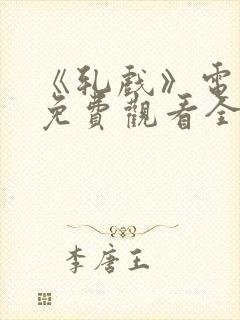 《乳戲》電
免費觀看全
李唐王